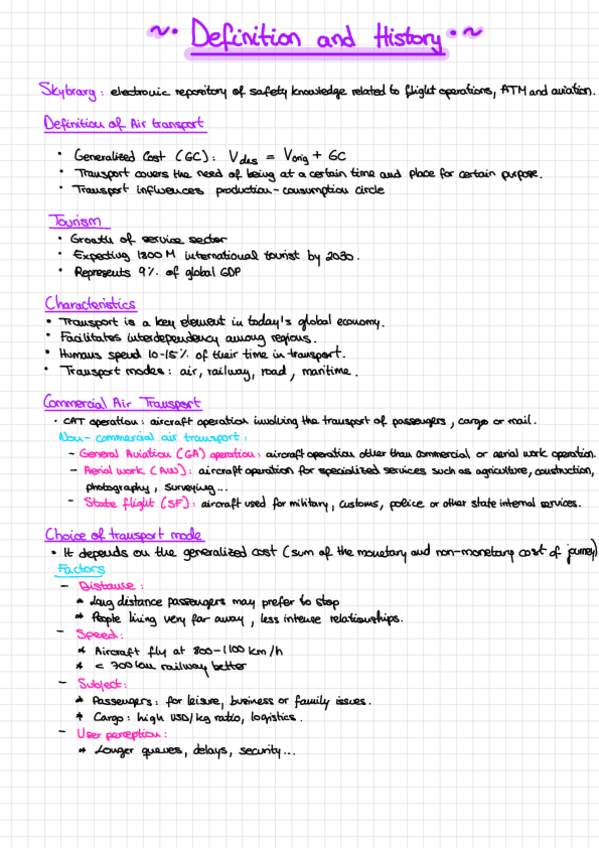 ~• Definition and History •~
Skybrary: electronic repository of safety knowledge related to flight operations, ATM and aviation.
Definition of Air transport
• Generalized Cost (GC): Vdes = Vorig + GC
• Transport covers the need of being at a certain time and place for certain purpose.
• Transport influences production-consumption circle
Tourism
• Growth of service sector
• Expecting 1800 M international tourist by 2030.
• Represents 9% of global GDP
Characteristics
• Transport is a key element in today's global economy.
• Facilitates interdependency among regions.
• Humans spend 10-15% of their time in transport.
• Transport modes: air, railway, road, maritime.
Commercial Air Transport
• CAT operation: aircraft operation involving the transport of passengers, cargo or mail.
Non-commercial air transport:
- General Aviation (GA) operation: aircraft operation other than commercial or aerial work operation.
- Aerial work (AW): aircraft operation for specialized services such as agriculture, construction,
photography, surveying...
- State flight (SF): aircraft used for military, customs, police or other state internal services.
Choice of transport mode
• It depends on the generalized cost (sum of the monetary and non-monetary cost of journey)
Factors
- Distance:
* Long distance passengers may prefer to stop
* People living very far away, less intense relationships.
- Speed:
* Aircraft fly at 800-1100 km/h
* < 700 km railway better
- Subject:
* Passengers: for leisure, business or family issues.
* Cargo: high USD/kg ratio, logistics.
- User perception:
* Longer queues, delays, security...